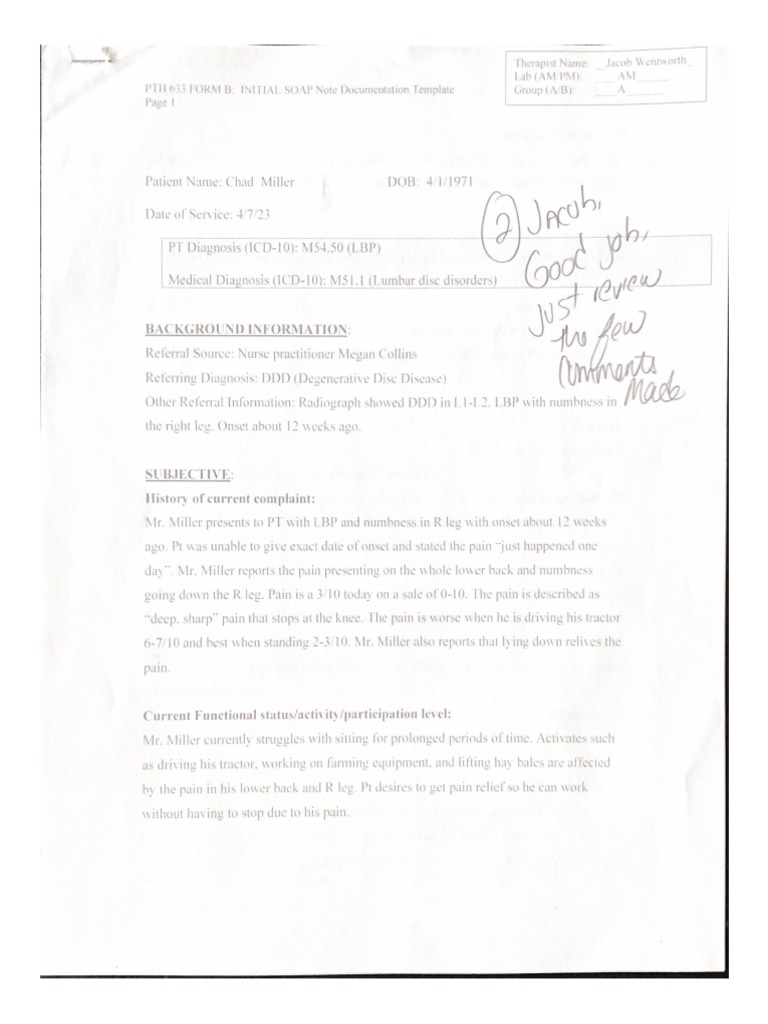 Therapist Name: __Jacob Wentworth_
Lab (AM PM): ____AM______
Group (A/B): ____A_______
PTH 633 FORM B: INITIAL SOAP Note Documentation Template
Page 1
Patient Name: Chad Miller DOB: 4/1/1971
Date of Service: 4/7/23
PT Diagnosis (ICD-10): M54.50 (LBP)
Medical Diagnosis (ICD-10): M51.1 (Lumbar disc disorders)
2 Jacob,
Good job,
Just review
the few
Comments
Made
BACKGROUND INFORMATION:
Referral Source: Nurse practitioner Megan Collins
Referring Diagnosis: DDD (Degenerative Disc Disease)
Other Referral Information: Radiograph showed DDD in L1-L2. LBP with numbness in
the right leg. Onset about 12 weeks ago.
SUBJECTIVE:
History of current complaint:
Mr. Miller presents to PT with LBP and numbness in R leg with onset about 12 weeks
ago. Pt was unable to give exact date of onset and stated the pain “just happened one
day”. Mr. Miller reports the pain presenting on the whole lower back and numbness
going down the R leg. Pain is a 3/10 today on a sale of 0-10. The pain is described as
“deep, sharp” pain that stops at the knee. The pain is worse when he is driving his tractor
6-7/10 and best when standing 2-3/10. Mr. Miller also reports that lying down relives the
pain.
Current Functional status/activity/participation level:
Mr. Miller currently struggles with sitting for prolonged periods of time. Activates such
as driving his tractor, working on farming equipment, and lifting hay bales are affected
by the pain in his lower back and R leg. Pt desires to get pain relief so he can work
without having to stop due to his pain.